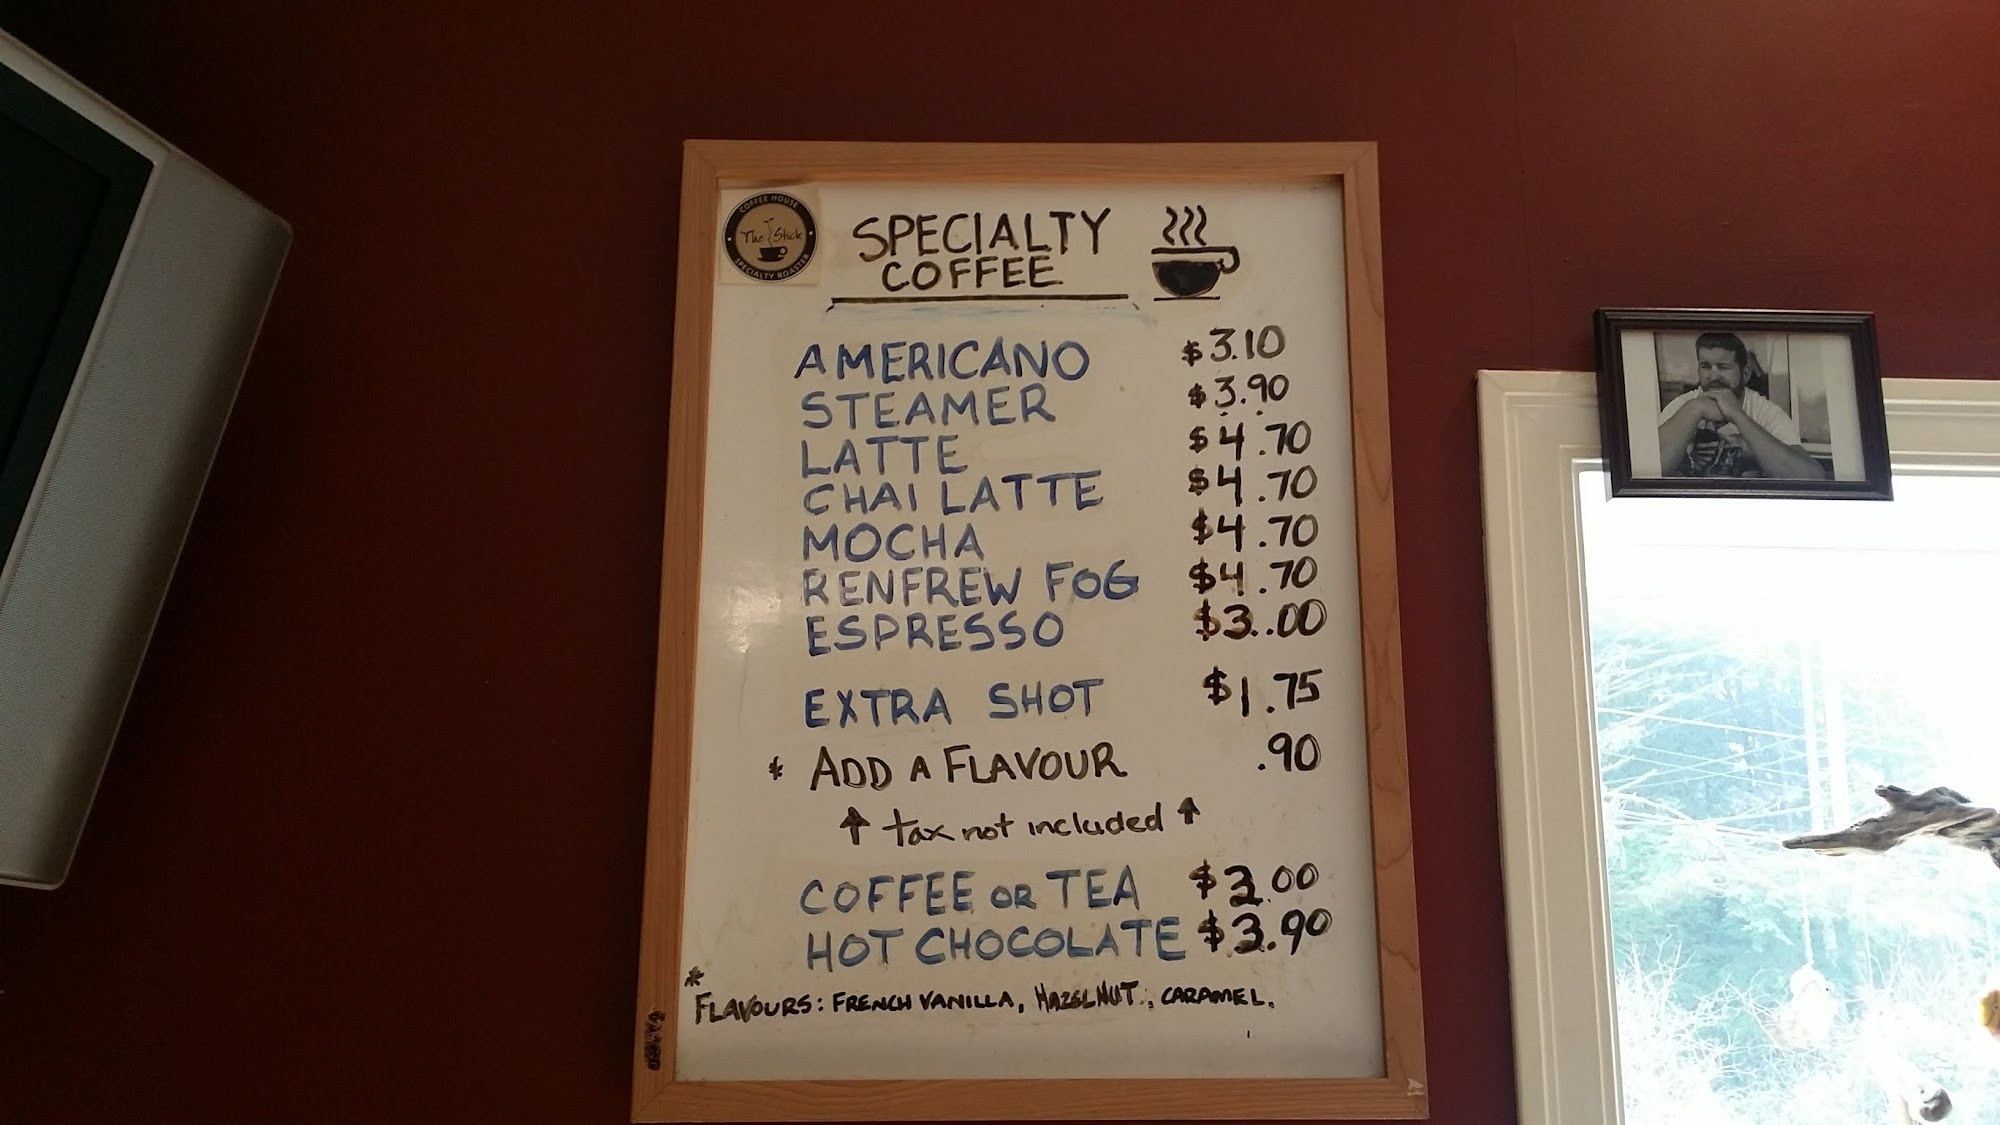 COFFEE HOUSE
The Stick
SPECIALTY ROASTER
SPECIALTY
COFFEE
AMERICANO $3.10
STEAMER $3.90
LATTE $4.70
CHAI LATTE $4.70
MOCHA $4.70
RENFREW FOG $4.70
ESPRESSO $3.00
EXTRA SHOT $1.75
* ADD A FLAVOUR .90
↑ tax not included ↑
COFFEE OR TEA $3.00
HOT CHOCOLATE $3.90
*
FLAVOURS: FRENCH VANILLA, HAZELNUT, CARAMEL.